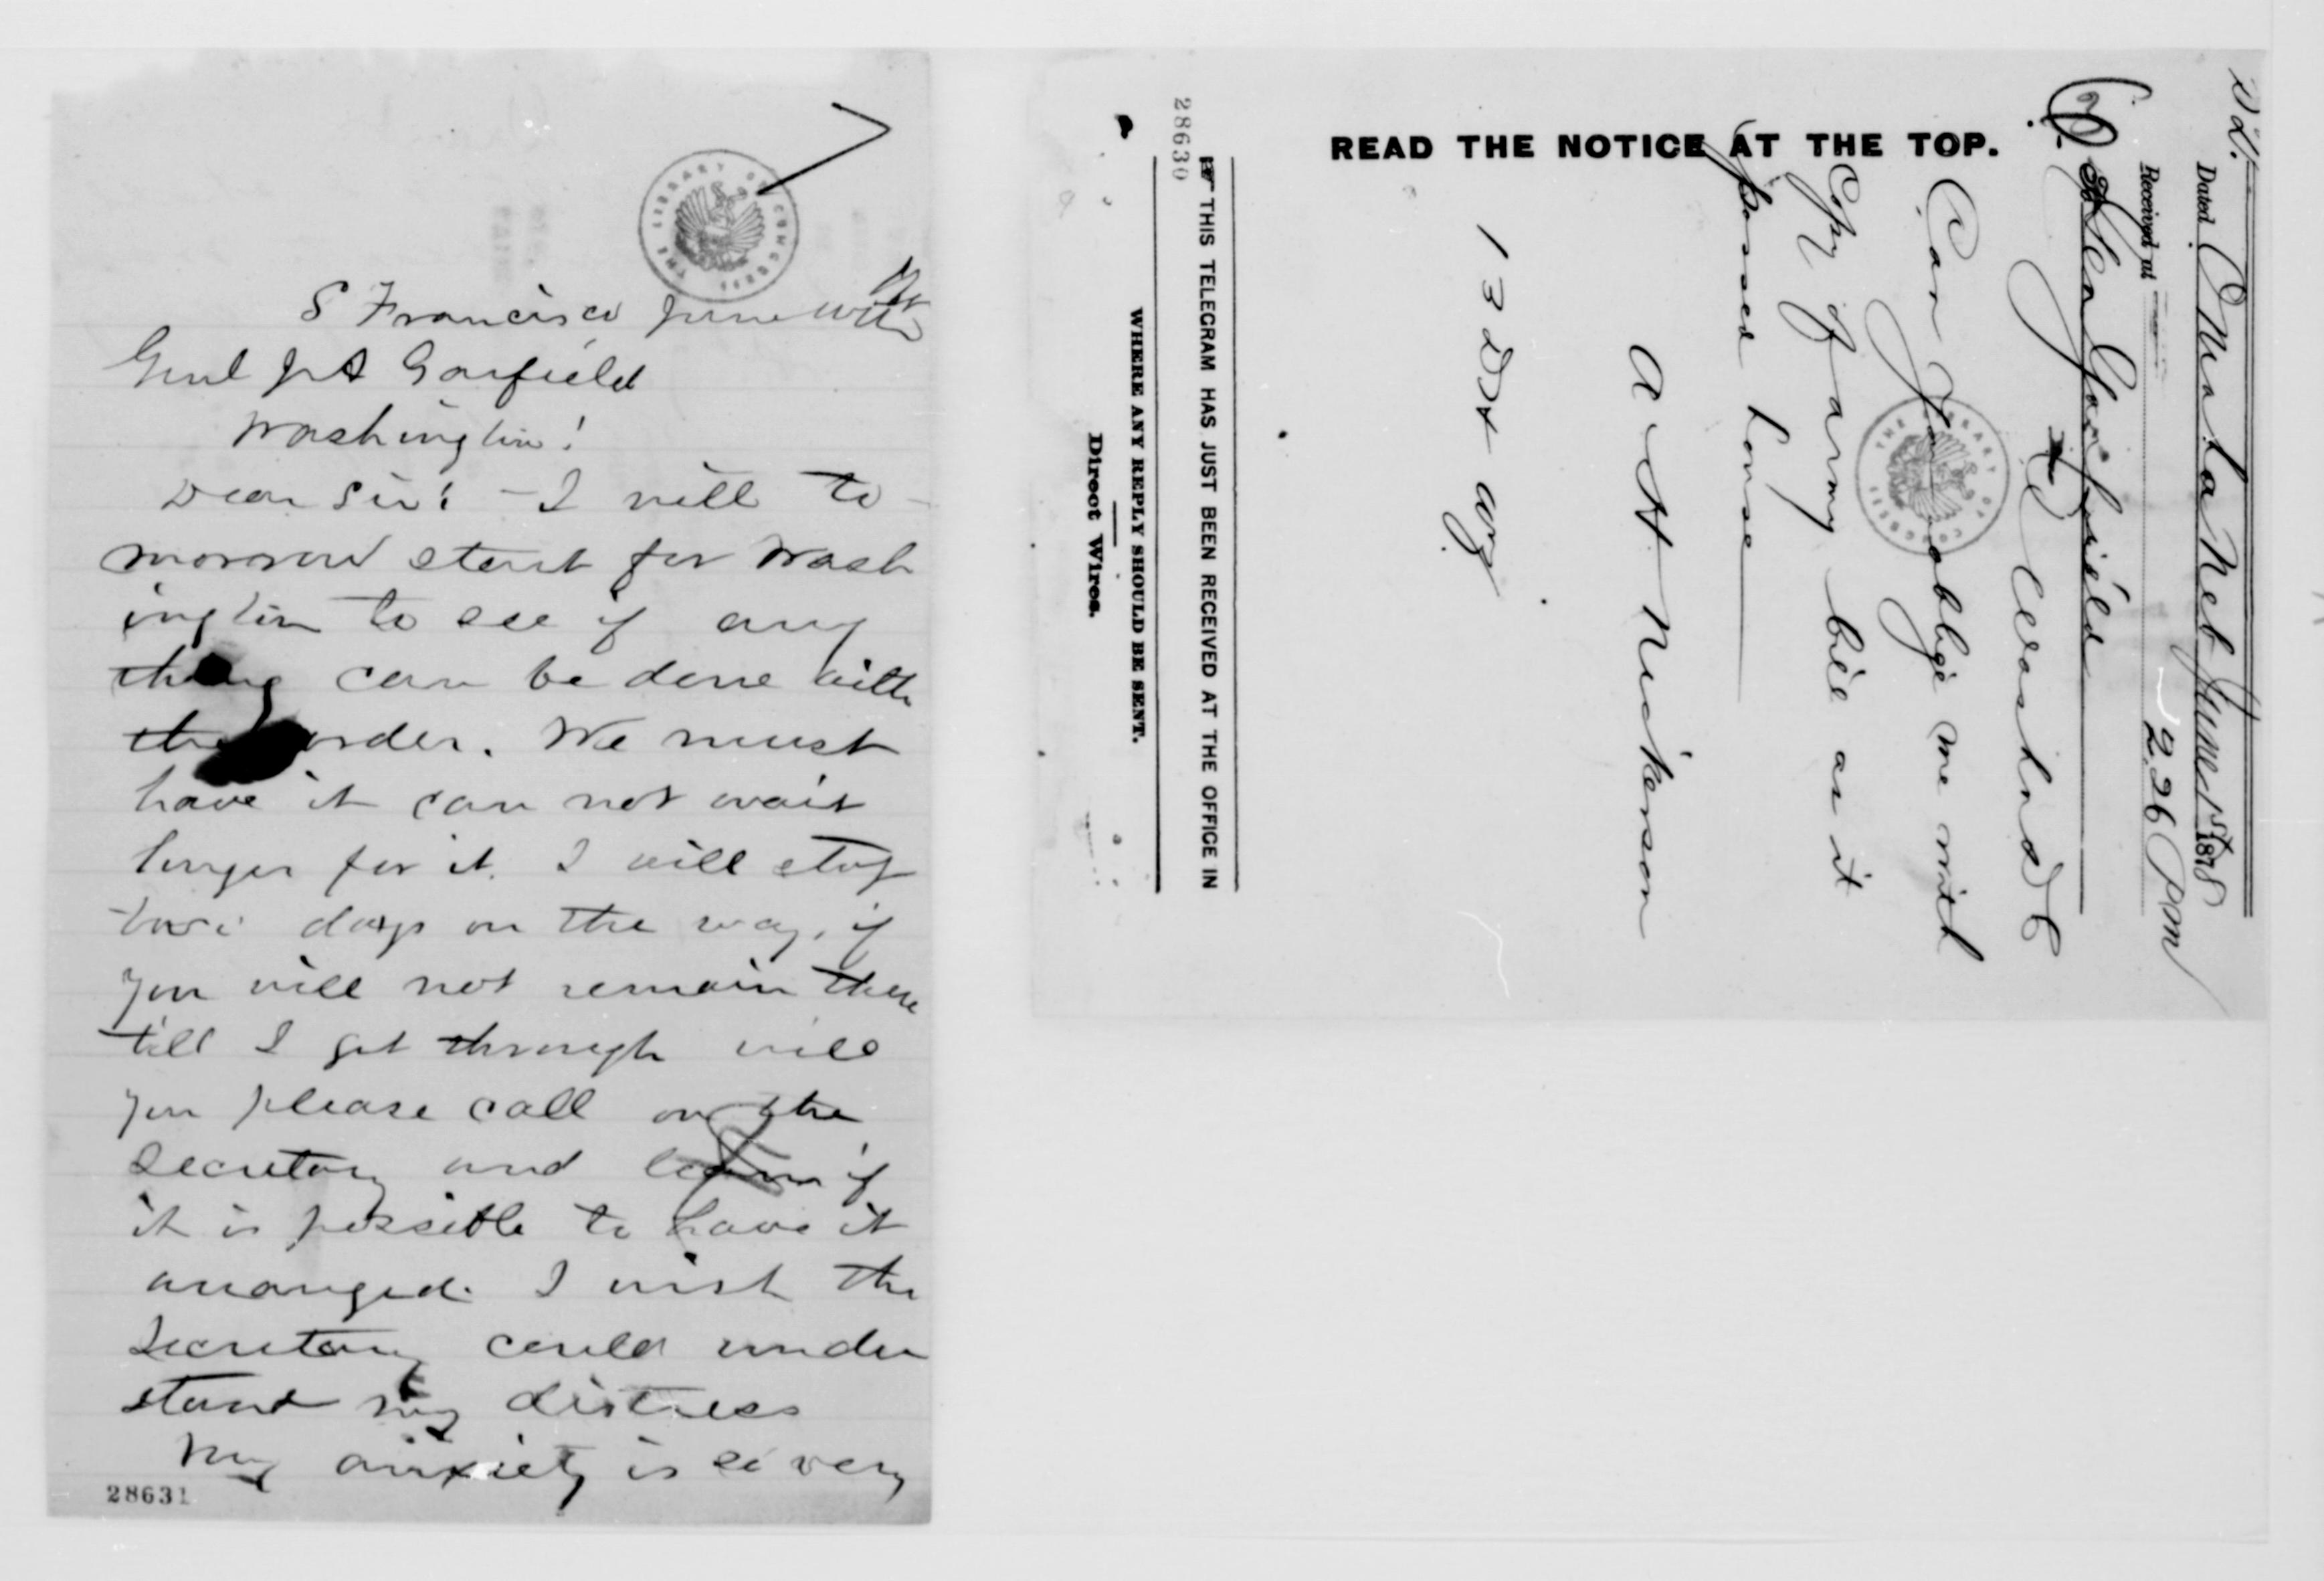 S Francisco June
Genl J A Garfield
Washington!
Dear Sir! - I will to
morrow start for Wash
ington to see if any
thing can be done with
the order. We must
have it can not wait
longer for it. I will stop
two days on the way, if
you will not remain there
till I get through will
you please call on the
Secretary and learn if
it is possible to have it
arranged. I wish the
Secretary could under
stand my distress
My anxiety is so very
28631
THE LIBRARY OF CONGRESS
Dated Omaha Neb June 1st 1878
Received at 2.26 Pm
To Gen Garfield
Wash DC
Can you oblige me with
Copy of army bill as it
passed house
A H Nickerson
13 DH
READ THE NOTICE AT THE TOP.
THE LIBRARY OF CONGRESS
THIS TELEGRAM HAS JUST BEEN RECEIVED AT THE OFFICE IN
WHERE ANY REPLY SHOULD BE SENT.
Direct Wires.
28630